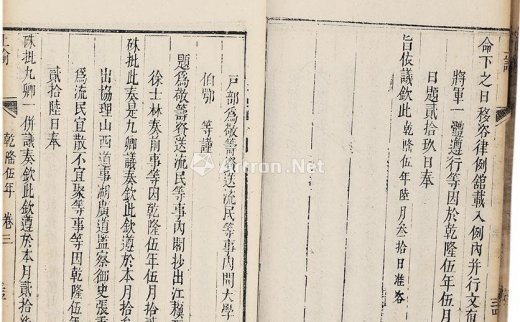 命下之日移咨律例舘載入例內并行文有
將軍一體遵行等因於乾隆伍年伍月
日題貳拾玖日奉
旨依議欽此乾隆伍年陸月叁拾日准咨
戶部爲敬籌資送流民等事內閣大學
伯鄂 等謹
題爲敬籌資送流民等事內閣抄出江
徐士林奏前事等因乾隆伍年伍月拾
硃批此奏是九卿議奏欽此欽遵於本月
出協理山西道事湖廣道監察御史張
爲流民宜散不宜聚等事等因乾隆伍年
貳拾陸日奉
硃批九卿一併議奏欽此欽遵於本月貳拾
上諭
乾隆伍年 卷三
Artron.Net